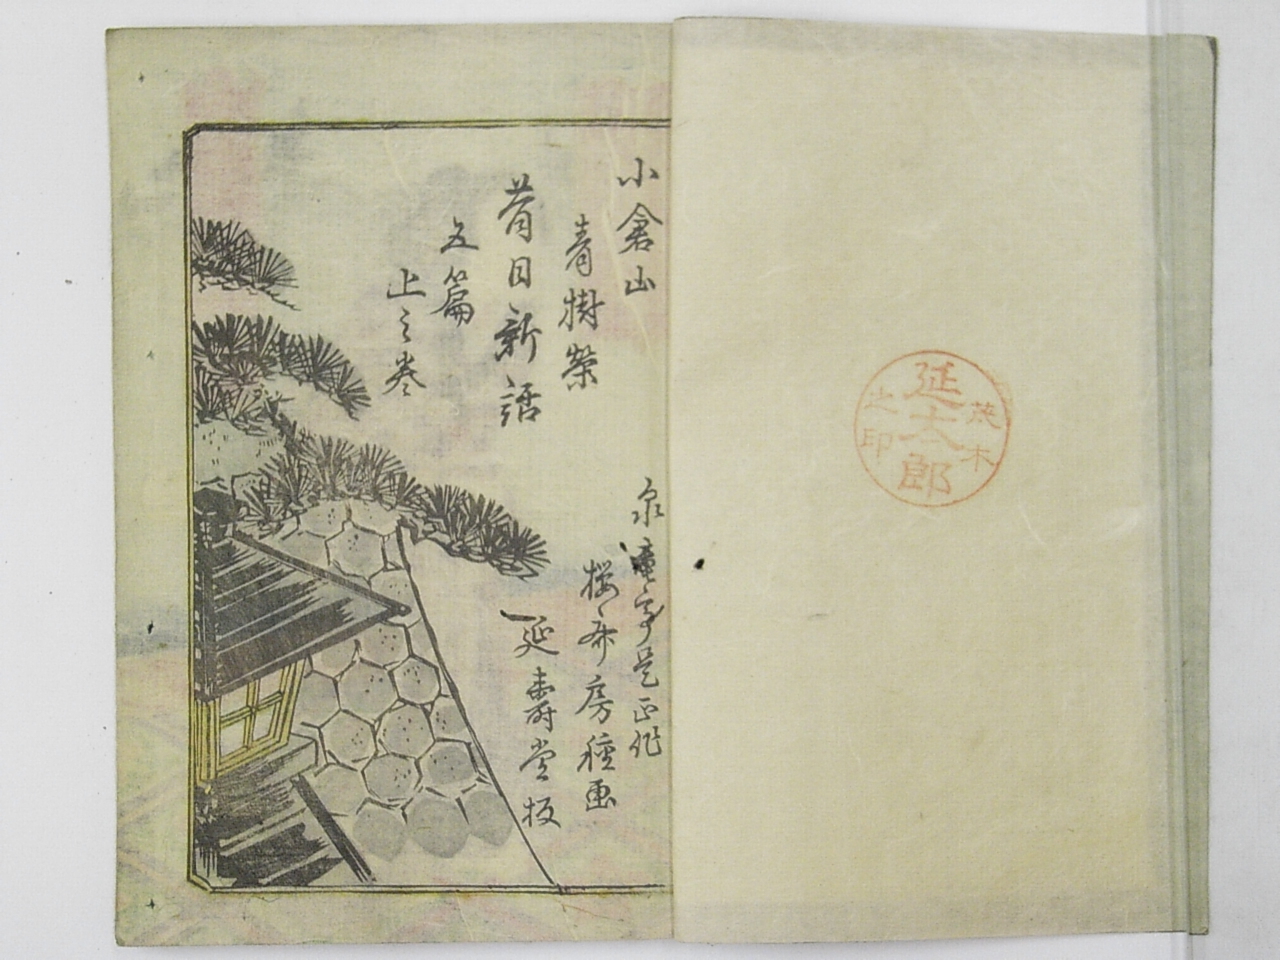 茂木
延太郎
之印
小倉山
青樹栄
昔日新話
五篇
上之巻
泉竜亭是正作
桜斎房種画
延寿堂板